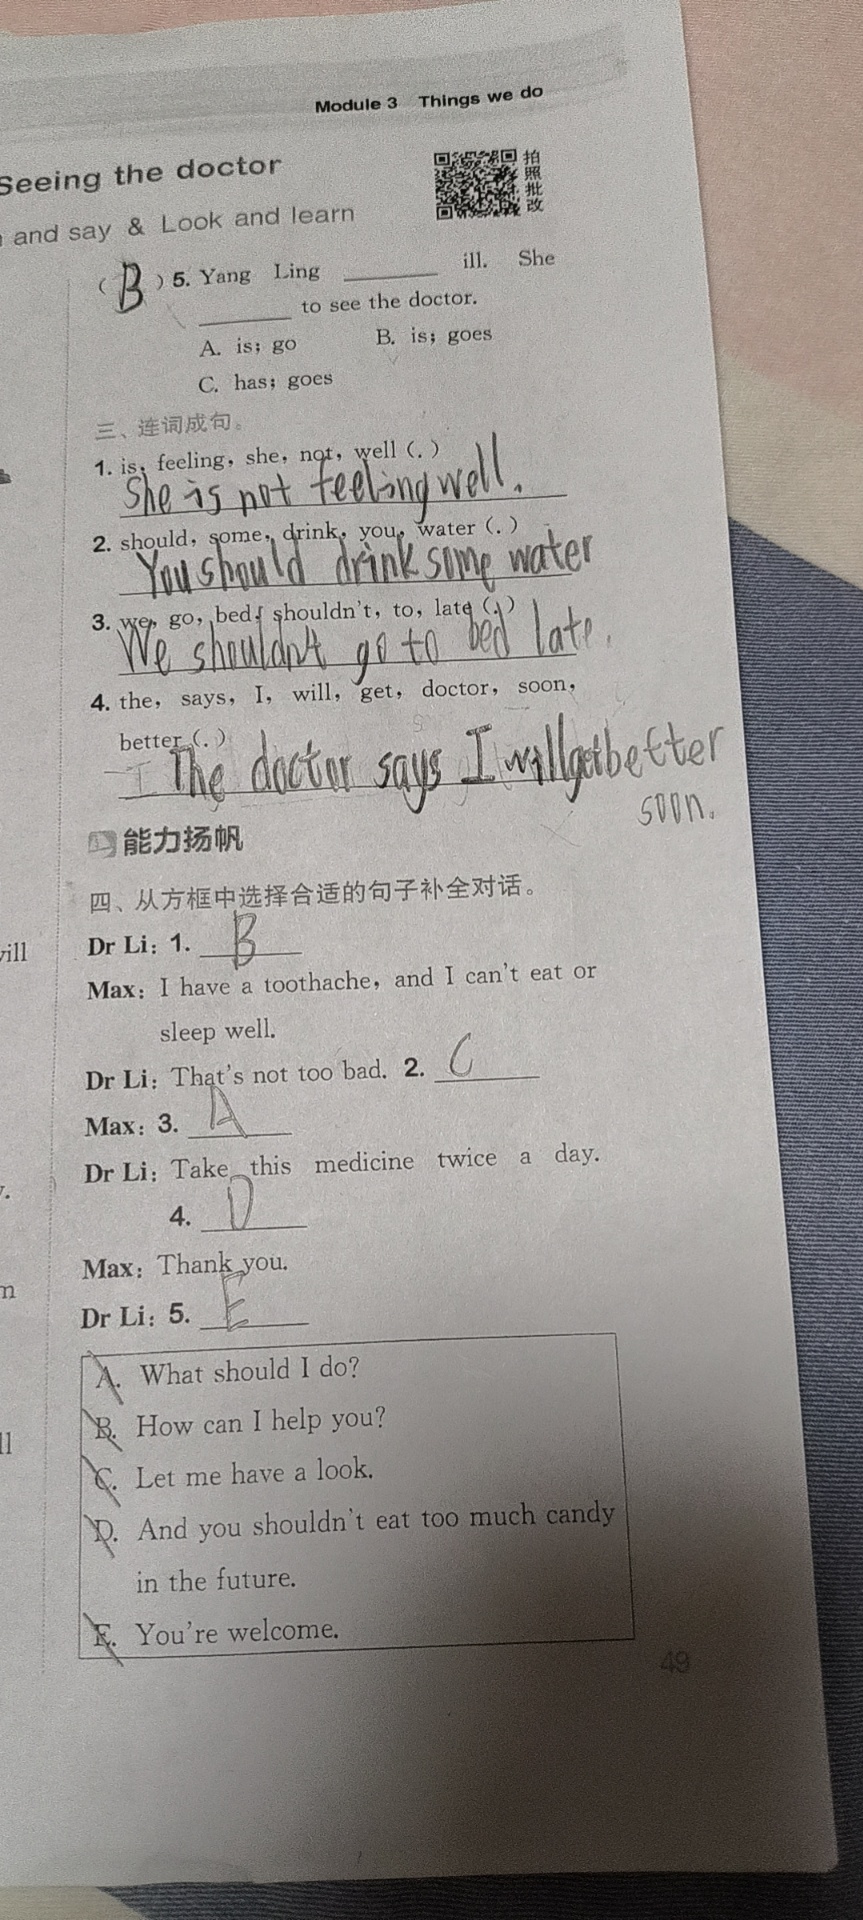 Module 3 Things we do
Seeing the doctor
拍照批改
and say & Look and learn
( B ) 5. Yang Ling ______ ill. She
______ to see the doctor.
A. is; go B. is; goes
C. has; goes
三、连词成句。
1. is, feeling, she, not, well (.)
She is not feeling well.
2. should, some, drink, you, water (.)
You should drink some water
3. we, go, bed, shouldn't, to, late (.)
We shouldn't go to bed late.
4. the, says, I, will, get, doctor, soon,
better (.)
The doctor says I will get better
soon.
能力扬帆
四、从方框中选择合适的句子补全对话。
will
Dr Li: 1. B
Max: I have a toothache, and I can't eat or
sleep well.
Dr Li: That's not too bad. 2. C
Max: 3. A
Dr Li: Take this medicine twice a day.
4. D
Max: Thank you.
Dr Li: 5. E
A. What should I do?
B. How can I help you?
C. Let me have a look.
D. And you shouldn't eat too much candy
in the future.
E. You're welcome.
49